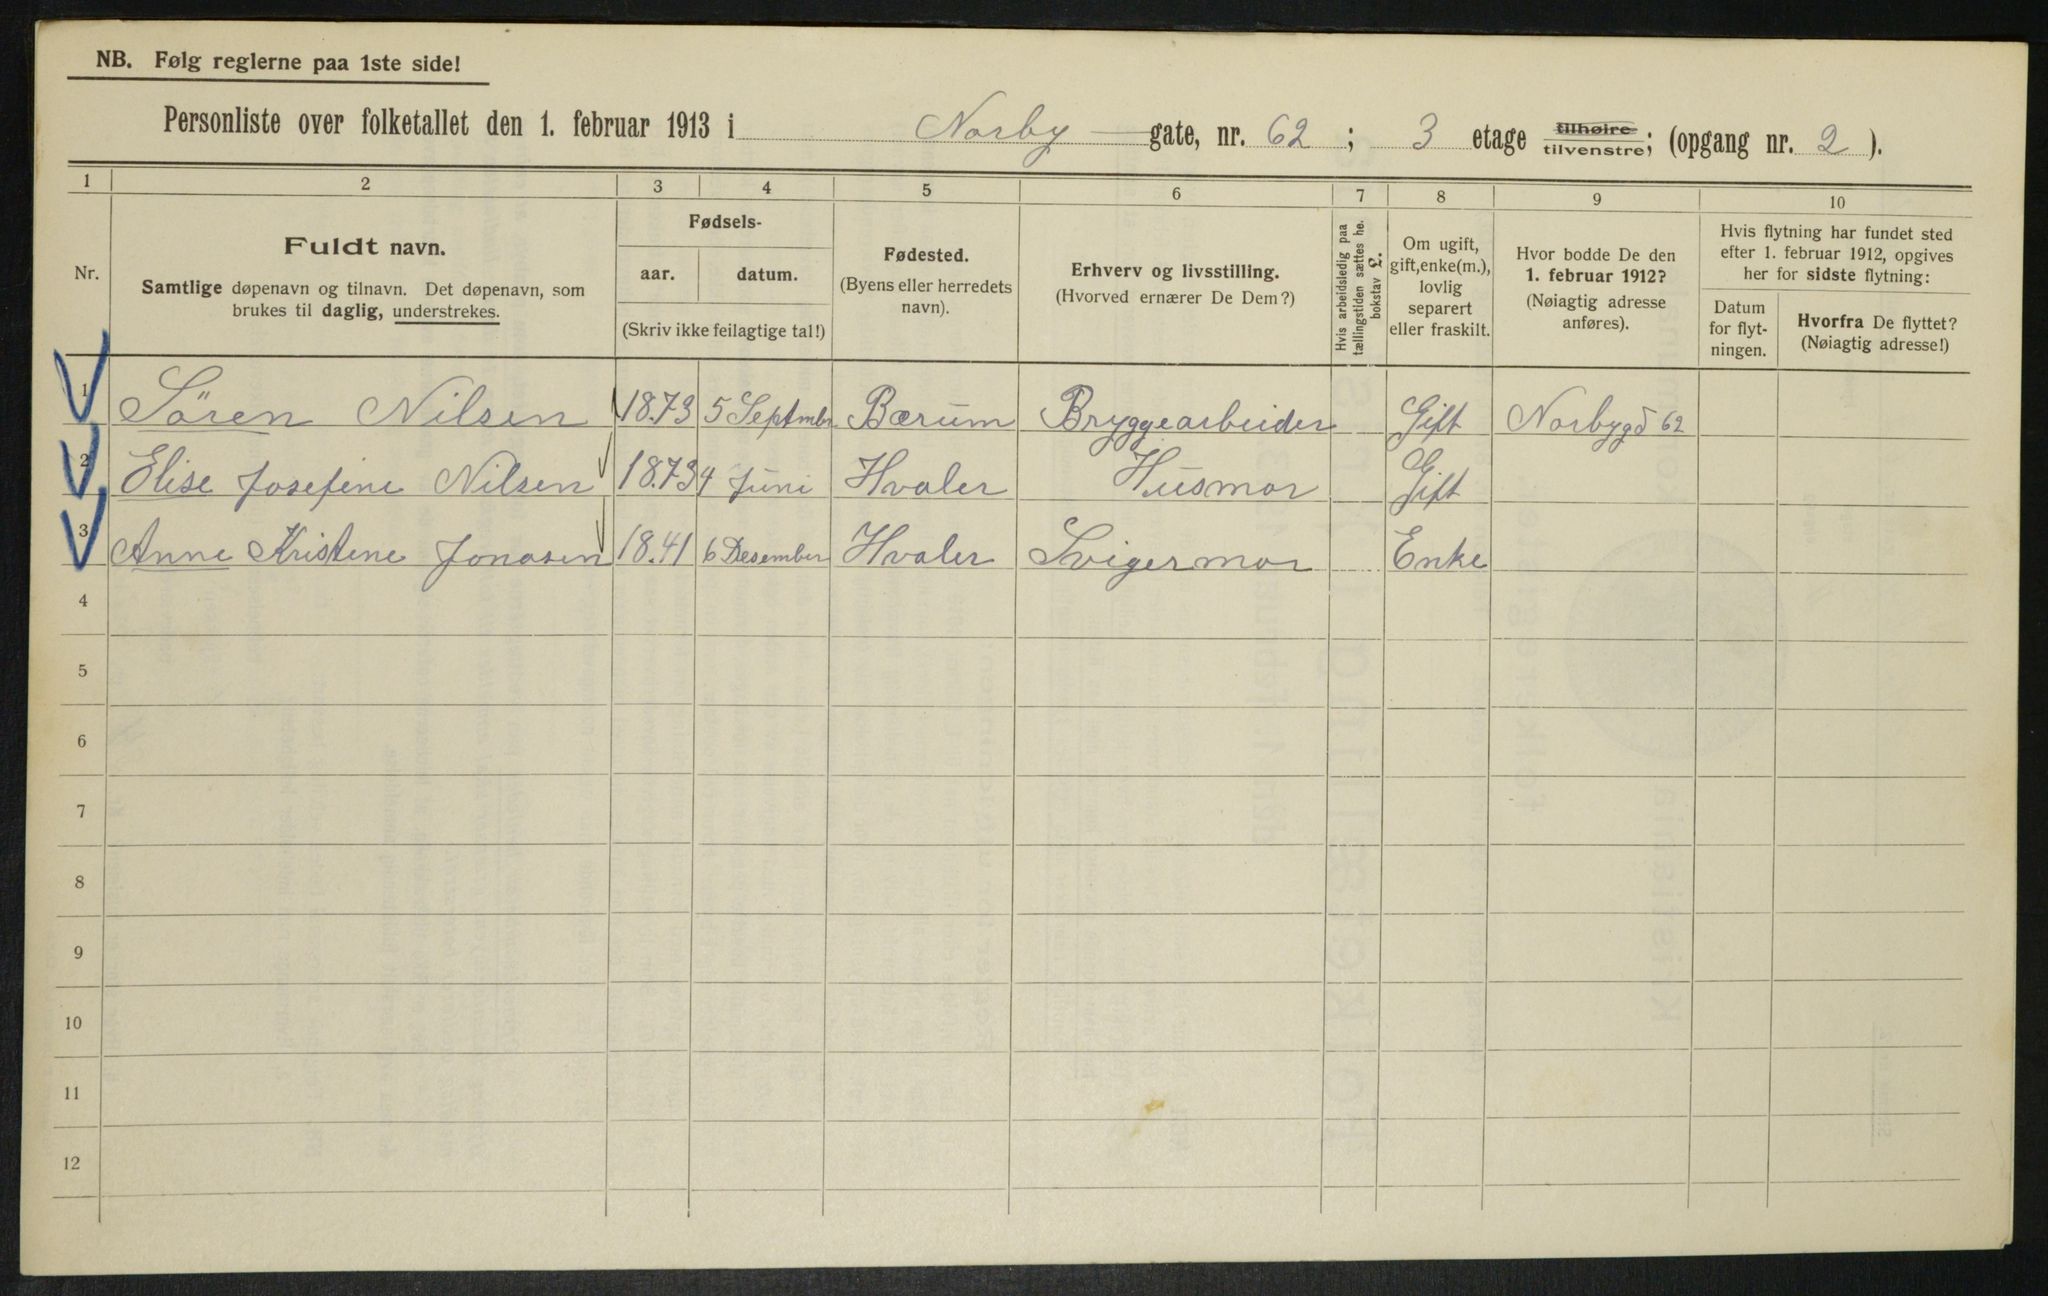 NB. Følg reglerne paa 1ste side!
Personliste over folketallet den 1. februar 1913 i Norby gate, nr. 62 ; 3 etage tilhøire tilvenstre; (opgang nr. 2 ).
1 2 3 4 5 6 7 8 9 10
Nr.
Fuldt navn.
Samtlige døpenavn og tilnavn. Det døpenavn, som
brukes til daglig, understrekes.
Fødsels-
aar. datum.
(Skriv ikke feilagtige tal!)
Fødested.
(Byens eller herredets
navn).
Erhverv og livsstilling.
(Hvorved ernærer De Dem?)
Hvis arbeidsledig paa
tællingstiden sættes he.
bokstav L.
Om ugift,
gift, enke(m.),
lovlig
separert
eller fraskilt.
Hvor bodde De den
1. februar 1912?
(Nøiagtig adresse
anføres).
Hvis flytning har fundet sted
efter 1. februar 1912, opgives
her for sidste flytning:
Datum
for flyt-
ningen.
Hvorfra De flyttet?
(Nøiagtig adresse!)
1 Sören Nilsen 18.73 5 Septmbr Bærum Bryggearbeider Gift Norbygd 62
2 Elise Josefine Nilsen 18.73 4 Juni Hvaler Husmor Gift
3 Anne Kristene Jonasen 18.41 6 Desember Hvaler Svigermor Enke
4
5
6
7
8
9
10
11
12